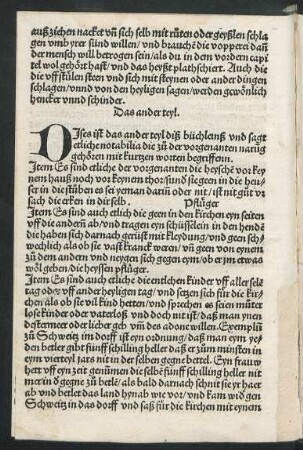 außziehen nacket vñ sich selb mit růten oder geyßlen schla
gen vmb yrer sünd willen/ vnd brauchẽ die vopperei dañ
der mensch will betrogen sein/ als du in dem vordern capi
tel wol gehört hast/ vnd das heyßt plathschiert. Auch die
die vff stülen sten vnd sich mit steynen oder ander dingen
schlagen/ vnnd von den heyligen sagen/ werden gewönlich
hencker vnnd schinder.
Das ander teyl.
DIses ist das ander teyl diß büchlenß vnd sagt
etliche notabilia die zů der vorgenanten narũg
gehören mit kurtzen worten begriffenn.
Item Es sind etliche der vorgenanten die heyschẽ vor key
nem hauß noch vor keynem thor/ sund sie geen in die heu-
ser in die stüben es sei yeman darũ oder nit/ ist nit gůt vr
sach die erken in dit selb. Pflüger
Item Es sind auch etlich die geen in den kirchen eyn seiten
vff die andern ab/ vnd tragen eyn schüsselein in den hendẽ
die haben sich darnach gerüst mit kleydung/ vnd geen sch-
wechlich als ob sie vast kranck weren/ vñ geen von eynem
zů dem andern vnd neygen sich gegen eym/ ob er jm etwas
wöl geben/ die heyssen pflüger.
Item Es sind auch etliche die entlehen kinder vff aller selẽ
tag oder vff ander heyligen tag/ vnd setzen sich für die kir-
chen als ob sie vil kind hetten/ vnd sprechen es seien můter
lose kinder oder vaterloß vnd doch nit ist/ daß man ynen
destermeer oder lieber geb vm̃ des adone willen. Exemplũ
Zů Schweitz im dorff ist eyn ordnung/ daß man eym ye-
den betler gibt fünff schilling heller daß er zům minsten in
eym vierteyl jars nit in der selben gegne betlet. Eyn fraw
hett vff eyn zeit genũmen die selbẽ fünff schilling heller nit
mer in ð gegne zů betlẽ/ als bald darnach schnit sie yr haer
ab vnd betlet das land hynab wie vor/ vnd kam wið gen
Schweitz in das dorff vnd saß für die kirchen mit eynem